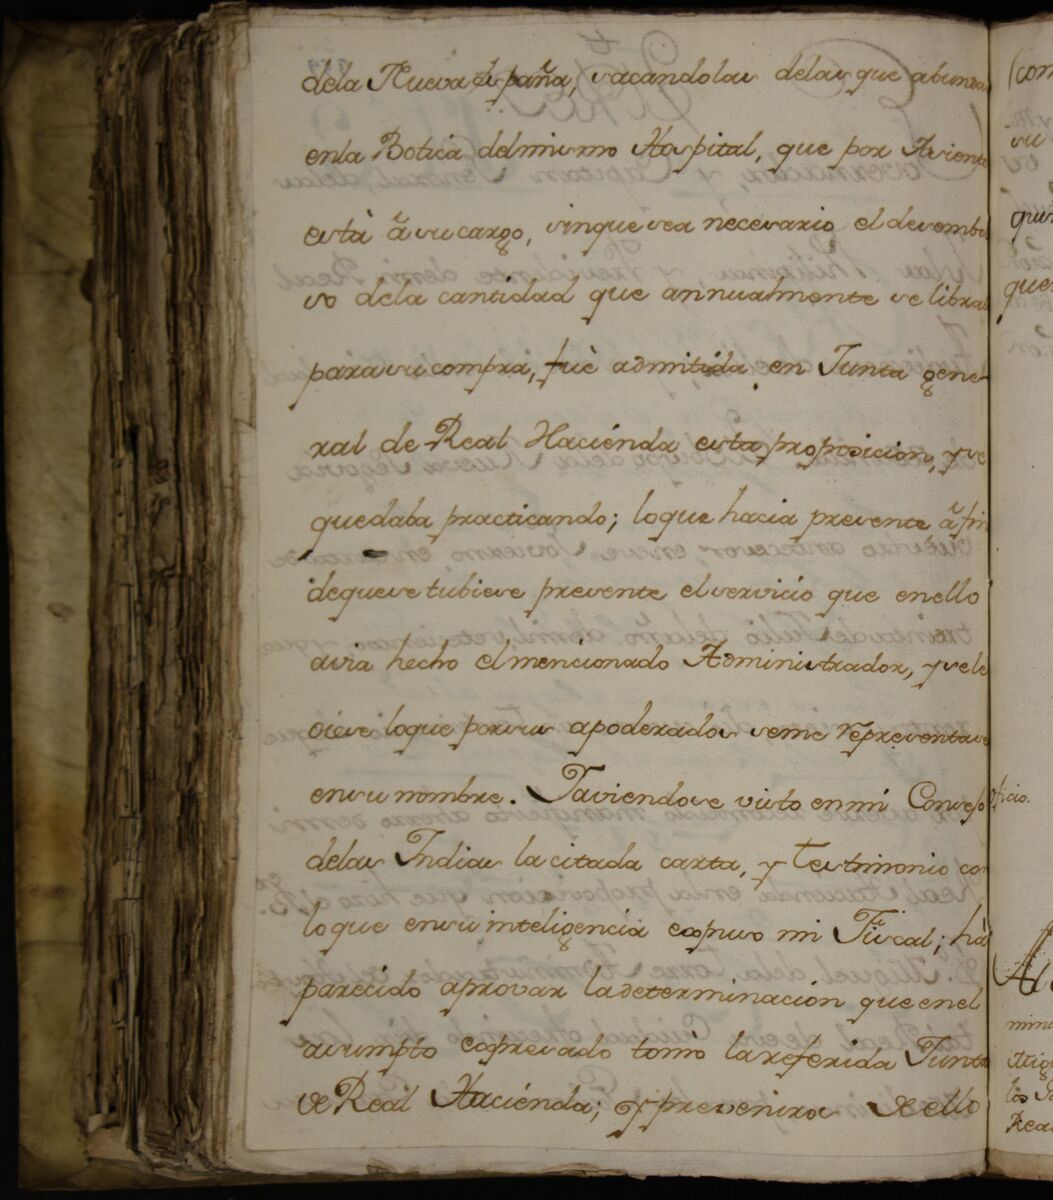 dela Nueva España, sacandolas delas que abunda
enla Botica delmismo Hospital, que por Asiento
està â su cargo, sinque sea necesario el desembol
so dela cantidad que annualmente se libra
para su compra, fuè admitida en Junta gene-
ral de Real Haciénda esta proposicion, y se
quedaba practicando; loque hacia presente â fin
dequese tubiese presente el servicio que enello
avia hecho el mencionado Administrador, y sele
oiese loque porsus apoderados seme representase
ensu nombre. Taviendose visto enmi Consejo
delas Indias la citada carta, y Testimonio con
lo que ensu inteligencia expuso mi Fiscal; hà
parecido aprovar la determinacion que enel
asumpto expresado tomò la referida Junta
de Real Haciénda; y preveniros de ello
(com
su
que
ficio.
Al